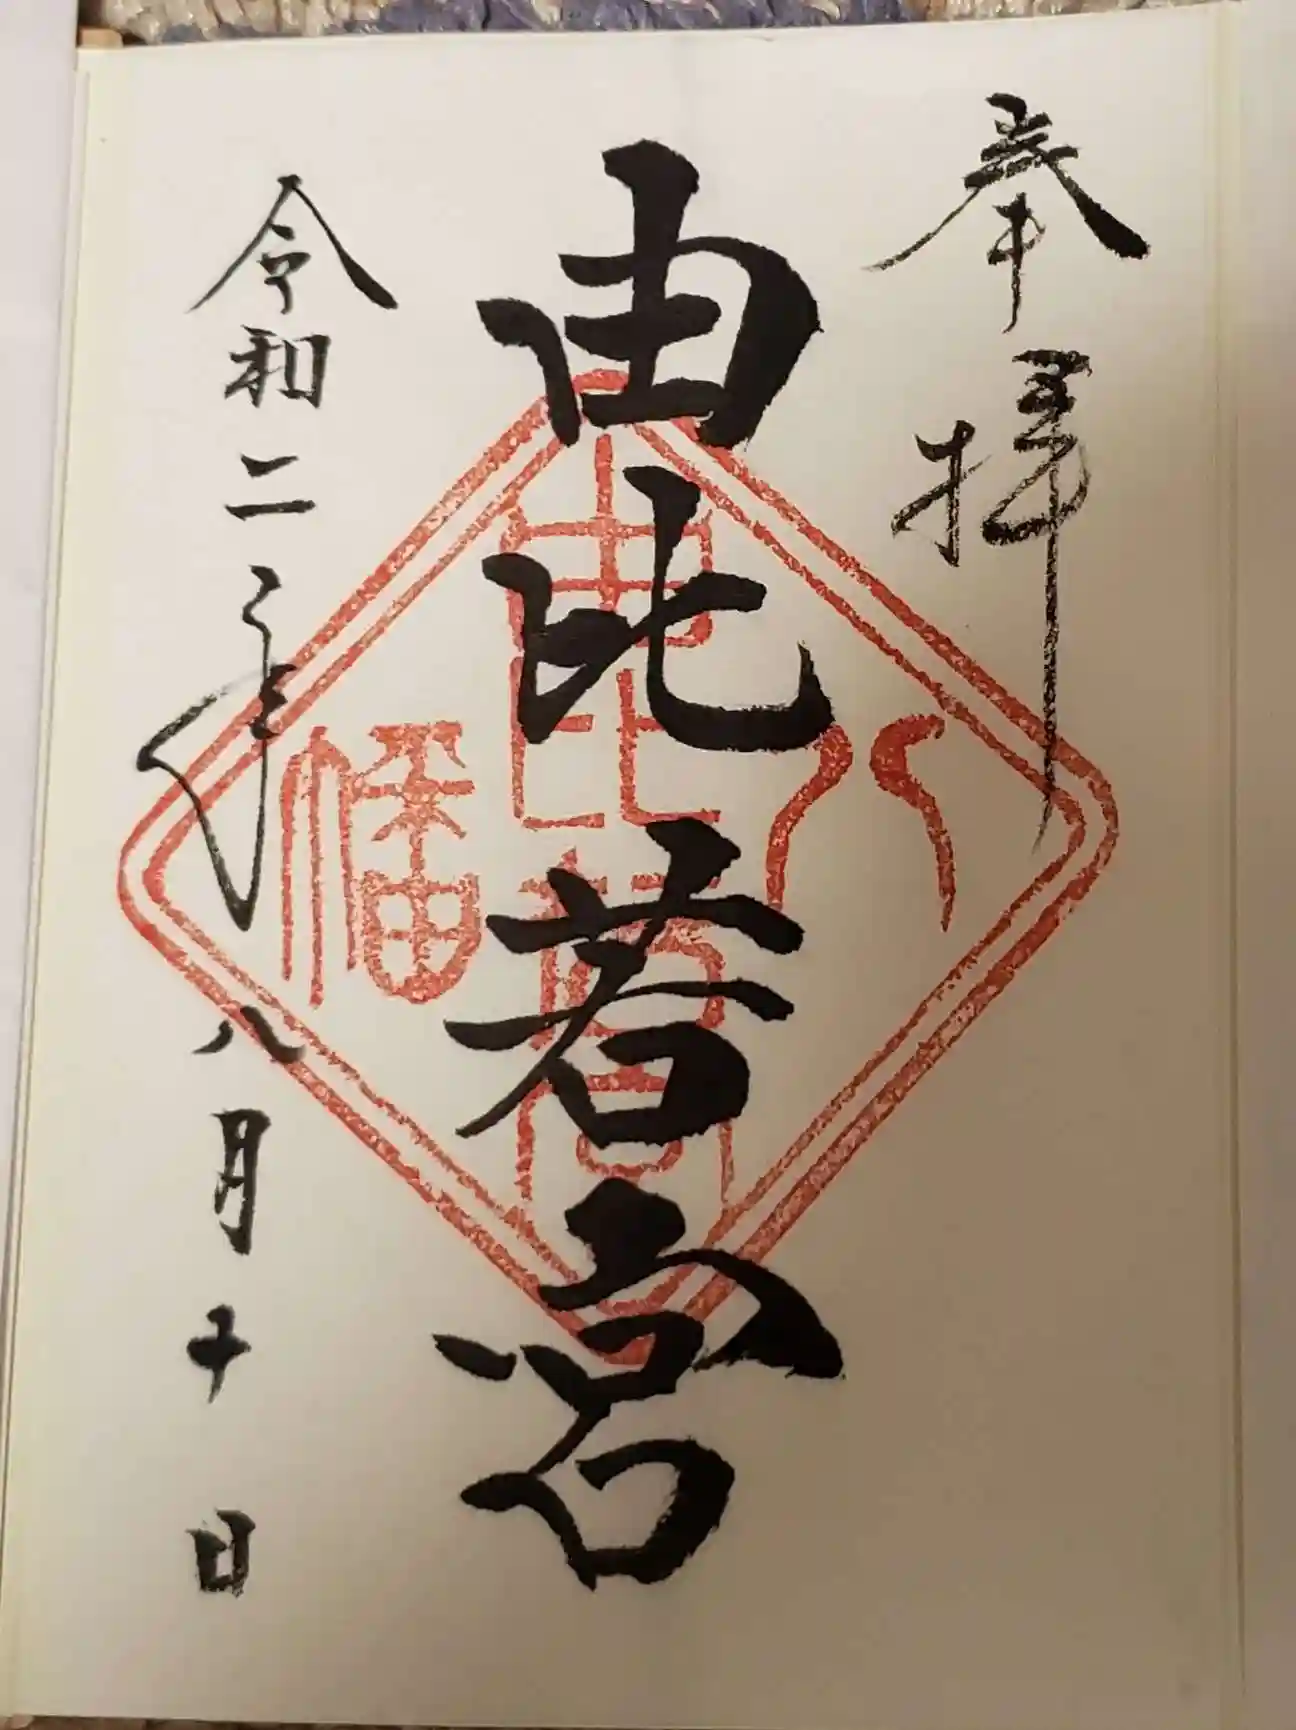 奉拝
由比若宮
八幡
由比若宮
令和二年八月十日